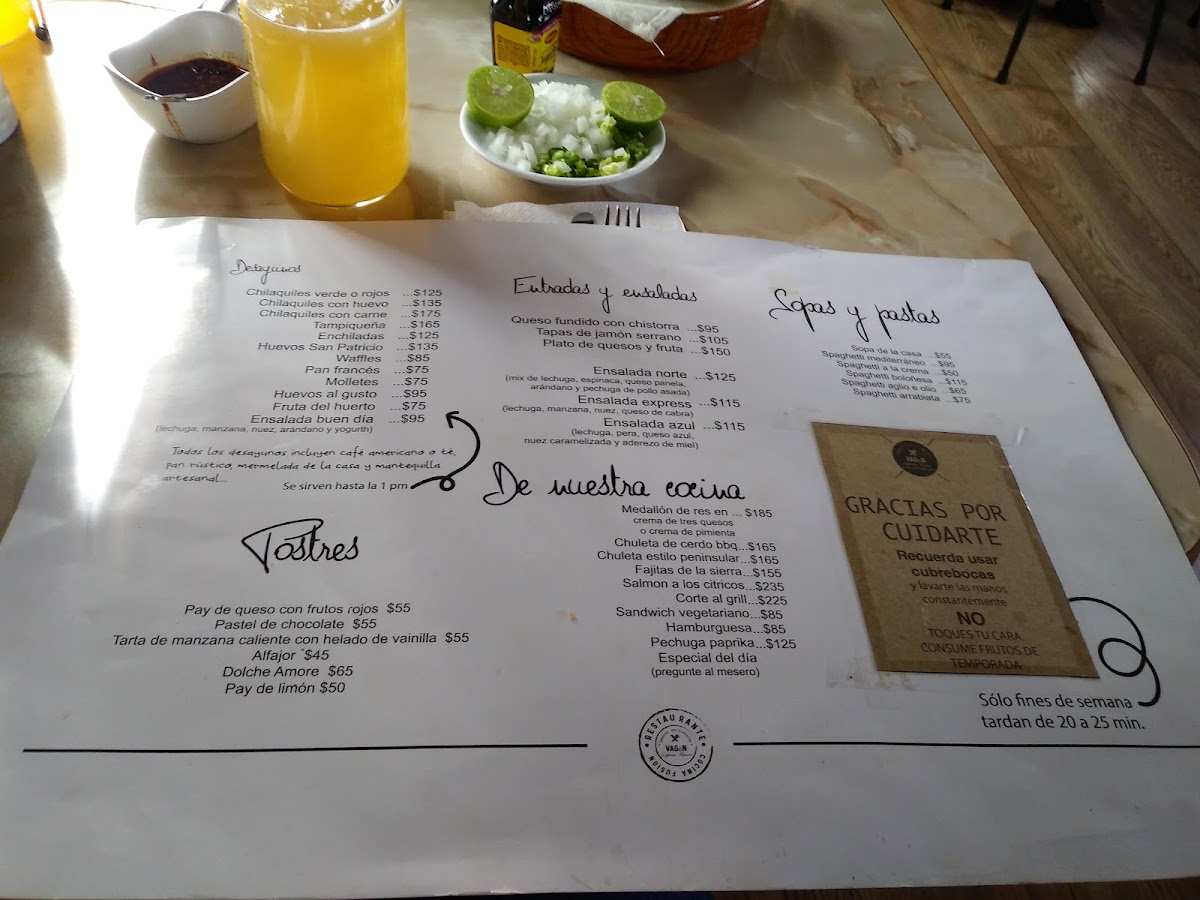 Desayunos
Chilaquiles verde o rojos ...$125
Chilaquiles con huevo ...$135
Chilaquiles con carne ...$175
Tampiqueña ...$165
Enchiladas ...$125
Huevos San Patricio ...$135
Waffles ...$85
Pan francés ...$75
Molletes ...$75
Huevos al gusto ...$95
Fruta del huerto ...$75
Ensalada buen día ...$95
(lechuga, manzana, nuez, arándano y yogurth)
Todos los desayunos incluyen café americano o té,
pan rústico, mermelada de la casa y mantequilla
artesanal...
Se sirven hasta la 1 pm
Postres
Pay de queso con frutos rojos $55
Pastel de chocolate $55
Tarta de manzana caliente con helado de vainilla $55
Alfajor $45
Dolche Amore $65
Pay de limón $50
Entradas y ensaladas
Queso fundido con chistorra ...$95
Tapas de jamón serrano ...$105
Plato de quesos y fruta ...$150
Ensalada norte ...$125
(mix de lechuga, espinaca, queso panela,
arándano y pechuga de pollo asada)
Ensalada express ...$115
(lechuga, manzana, nuez, queso de cabra)
Ensalada azul ...$115
(lechuga, pera, queso azul,
nuez caramelizada y aderezo de miel)
De nuestra cocina
Medallón de res en ... $185
crema de tres quesos
o crema de pimienta
Chuleta de cerdo bbq...$165
Chuleta estilo peninsular...$165
Fajitas de la sierra...$155
Salmon a los citricos...$235
Corte al grill...$225
Sandwich vegetariano...$85
Hamburguesa...$85
Pechuga paprika...$125
Especial del día
(pregunte al mesero)
Sopas y pastas
Sopa de la casa ...$55
Spaghetti mediterráneo ...$95
Spaghetti a la crema ...$50
Spaghetti boloñesa ...$115
Spaghetti aglio e olio ...$65
Spaghetti arrabiata ...$75
GRACIAS POR
CUIDARTE
Recuerda usar
cubrebocas
y lavarte las manos
constantemente
NO
TOQUES TU CARA.
CONSUME FRUTOS DE
TEMPORADA
Sólo fines de semana
tardan de 20 a 25 min.
RESTAURANTE
VAGÓN
COCINA FUSIÓN